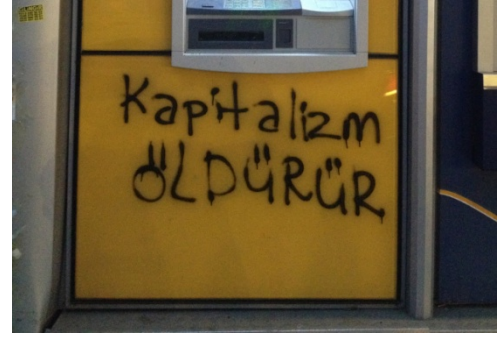 Kapitalizm
ÖLDÜRÜR